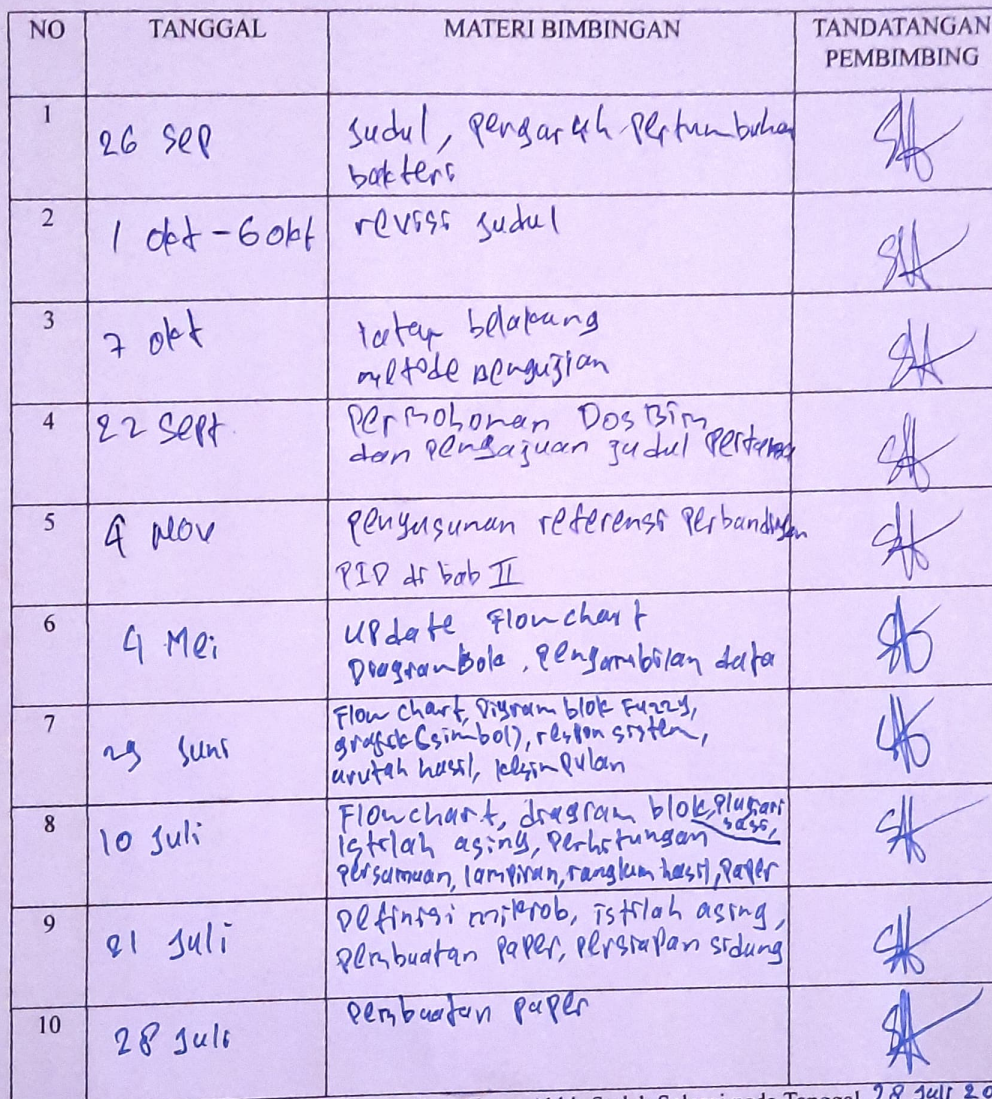 NO TANGGAL MATERI BIMBINGAN TANDATANGAN
PEMBIMBING
1 26 Sep Judul, pengaruh pertumbuhan
bakteri
2 1 okt - 6 okt revisi Judul
3 7 okt latar belakang
metode pengujian
4 22 Sept. Permohonan Dos Bim
dan pengajuan judul pertama
5 4 Nov penyusunan referensi perbandingan
PID di bab II
6 4 Mei UPdate Flowchart
Diagram Bolk, pengambilan data
7 29 Juni Flow chart, Digram blok Fuzzy,
grafik (simbol), respon sistem,
urutan hasil, kesimpulan
8 10 Juli Flowchart, diagram blok, plagiari
sasi,
istilah asing, perhitungan
persamaan, lampiran, rangkum hasil, paper
9 21 Juli Definisi mikrob, istilah asing,
pembuatan paper, persiapan sidang
10 28 Juli pembuatan paper
Tanggal 28 Juli 20